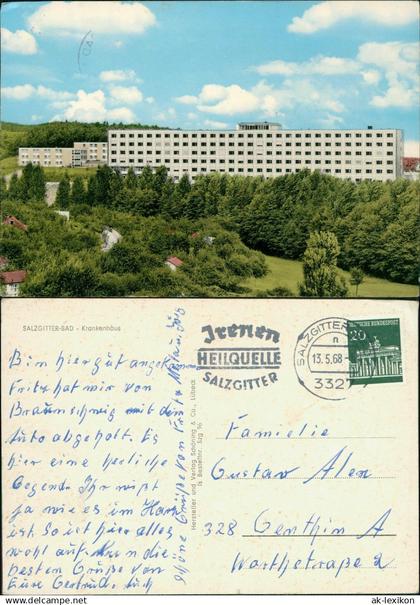 SALZGITTER-BAD - Krankenhaus
Bin hier gut angekommen
Fritz hat mir von
Braunschweig mit dem
Auto abgeholt. Es
hier eine herliche
Gegend. Ihr wißt
ja wie es im Harz
ist. So ist hier alles
wohl auf. Nun die
besten Grüße von
Eure Gertrud. Auch
schöne Grüße von Fritz
Hersteller und Verlag Schöning & Co., Lübeck
Bestellnr. Szg 96
Irenen
HEILQUELLE
SALZGITTER
SALZGITTER
n
13.5.68
3327
DEUTSCHE BUNDESPOST
20
Familie
Gustav Alex
328 Genthin A
2
ak-lexikon.com